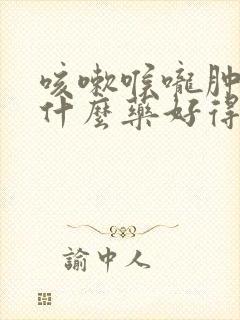 咳嗽喉嚨肿
什麼藥好得
諭中人